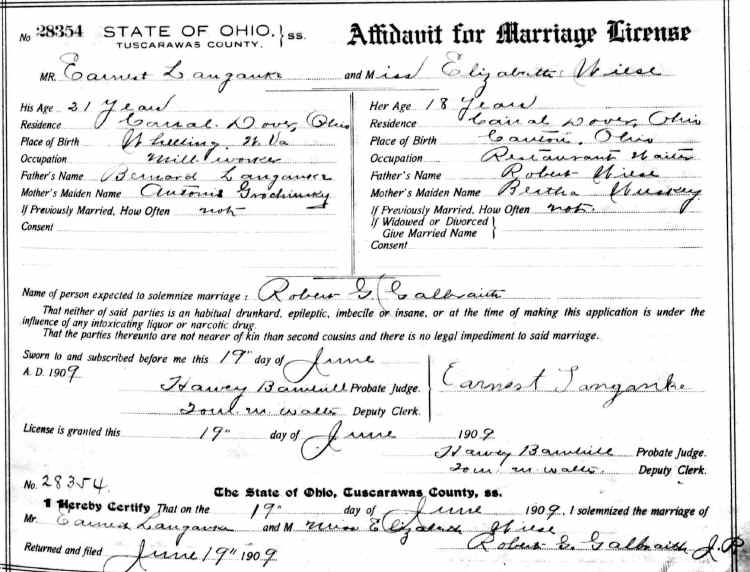 No 28354 STATE OF OHIO, } ss. Affidavit for Marriage License
TUSCARAWAS COUNTY.
MR. Earnest Langanke and Miss Elizabeth Wiese
His Age 21 Years
Residence Canal Dover, Ohio
Place of Birth Wheeling, W. Va
Occupation Mill worker
Father's Name Bernard Langanke
Mother's Maiden Name
If Previously Married, How Often not
Consent
Her Age 18 Years
Residence Canal Dover, Ohio
Place of Birth Canton, Ohio
Occupation Restaurant Waiter
Father's Name Robert Wiese
Mother's Maiden Name Bertha
If Previously Married, How Often not.
If Widowed or Divorced }
Give Married Name
Consent
Name of person expected to solemnize marriage: Robert G. Galbraith
That neither of said parties is an habitual drunkard, epileptic, imbecile or insane, or at the time of making this application is under the
influence of any intoxicating liquor or narcotic drug.
That the parties thereunto are not nearer of kin than second cousins and there is no legal impediment to said marriage.
Sworn to and subscribed before me this 19" day of June
A. D. 1909 Earnest Langanke
Probate Judge.
Deputy Clerk.
License is granted this 19" day of June 1909
Probate Judge.
Deputy Clerk.
No. 28354.
The State of Ohio, Tuscarawas County, ss.
I Hereby Certify That on the 19" day of June 1909, I solemnized the marriage of
Mr. Earnest Langanke and M Miss Elizabeth Wiese
Returned and filed June 19" 1909 Robert G. Galbraith J.P.